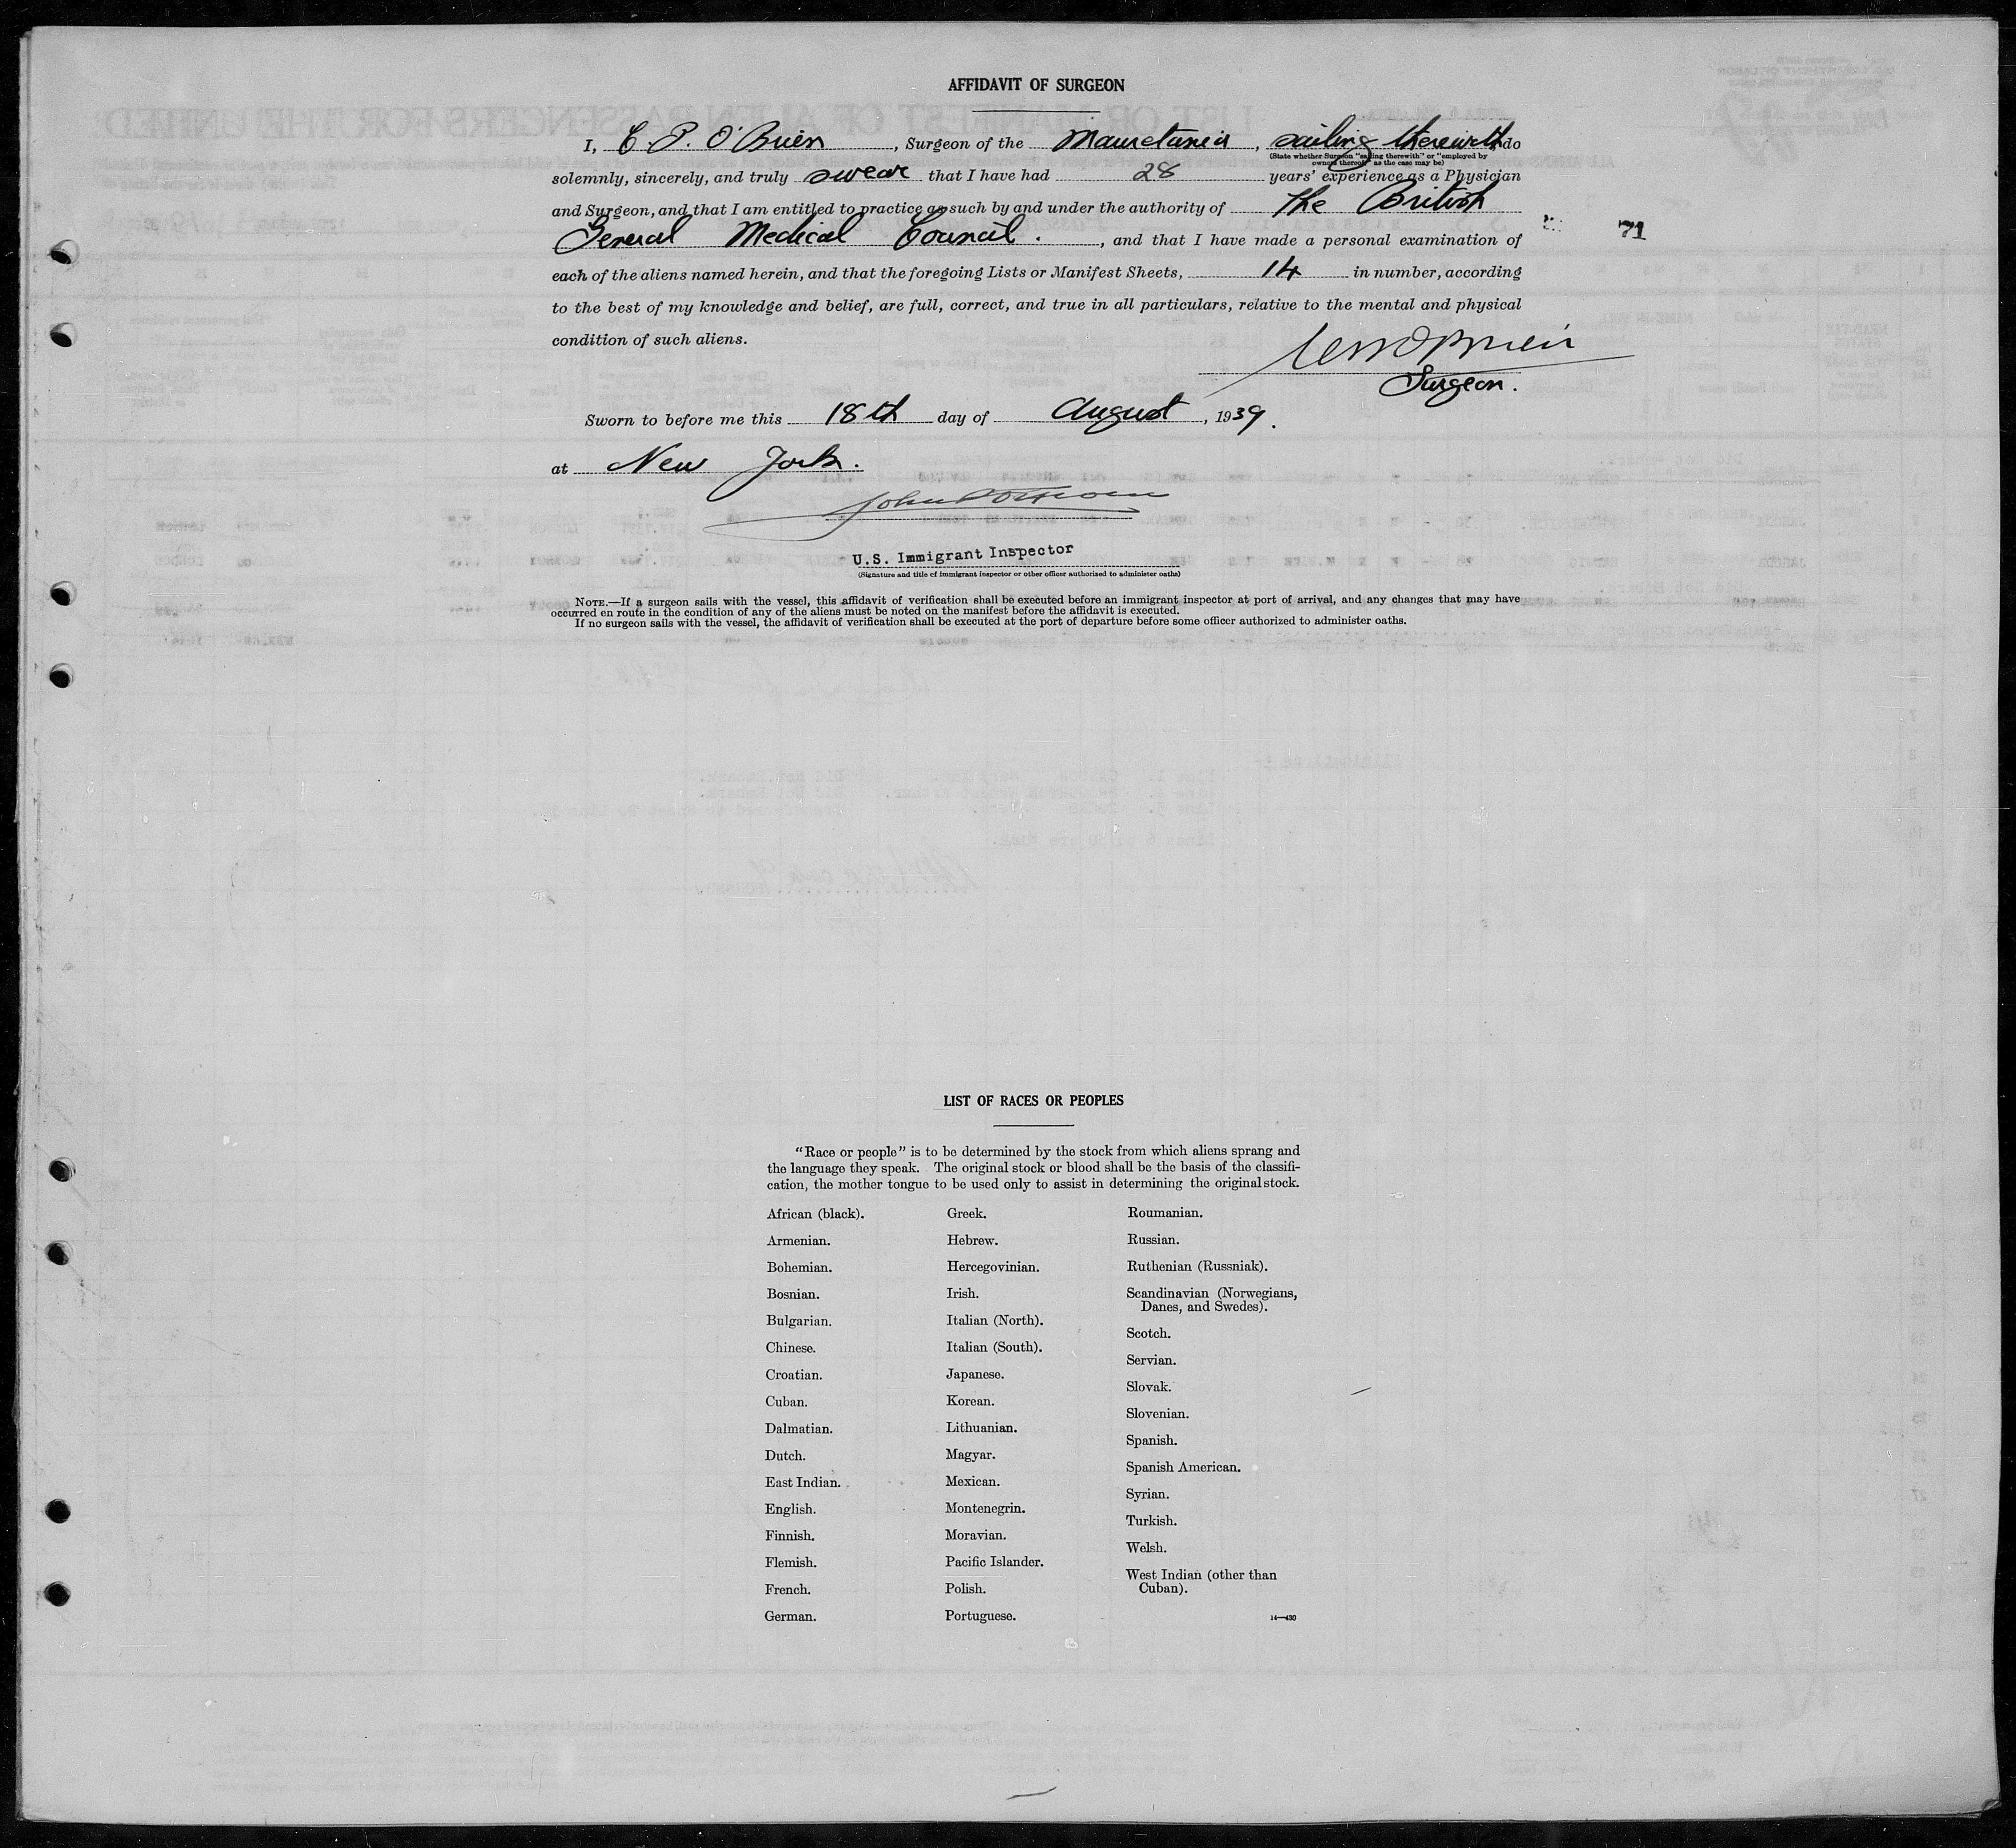 AFFIDAVIT OF SURGEON
I, C. P. O'Brien, Surgeon of the Mauretania, sailing therewith, do
(State whether Surgeon "sailing therewith" or "employed by
owners thereof," as the case may be)
solemnly, sincerely, and truly swear that I have had 28 years' experience as a Physician
and Surgeon, and that I am entitled to practice as such by and under the authority of The British
General Medical Council., and that I have made a personal examination of
71
each of the aliens named herein, and that the foregoing Lists or Manifest Sheets, 14 in number, according
to the best of my knowledge and belief, are full, correct, and true in all particulars, relative to the mental and physical
condition of such aliens.
O'Brien
Surgeon.
Sworn to before me this 18th day of August, 1939.
at New York.
John
U.S. Immigrant Inspector
(Signature and title of immigrant inspector or other officer authorized to administer oaths)
NOTE.—If a surgeon sails with the vessel, this affidavit of verification shall be executed before an immigrant inspector at port of arrival, and any changes that may have
occurred en route in the condition of any of the aliens must be noted on the manifest before the affidavit is executed.
If no surgeon sails with the vessel, the affidavit of verification shall be executed at the port of departure before some officer authorized to administer oaths.
LIST OF RACES OR PEOPLES
"Race or people" is to be determined by the stock from which aliens sprang and
the language they speak. The original stock or blood shall be the basis of the classifi-
cation, the mother tongue to be used only to assist in determining the original stock.
African (black).
Armenian.
Bohemian.
Bosnian.
Bulgarian.
Chinese.
Croatian.
Cuban.
Dalmatian.
Dutch.
East Indian.
English.
Finnish.
Flemish.
French.
German.
Greek.
Hebrew.
Hercegovinian.
Irish.
Italian (North).
Italian (South).
Japanese.
Korean.
Lithuanian.
Magyar.
Mexican.
Montenegrin.
Moravian.
Pacific Islander.
Polish.
Portuguese.
Roumanian.
Russian.
Ruthenian (Russniak).
Scandinavian (Norwegians,
Danes, and Swedes).
Scotch.
Servian.
Slovak.
Slovenian.
Spanish.
Spanish American.
Syrian.
Turkish.
Welsh.
West Indian (other than
Cuban).
14—430